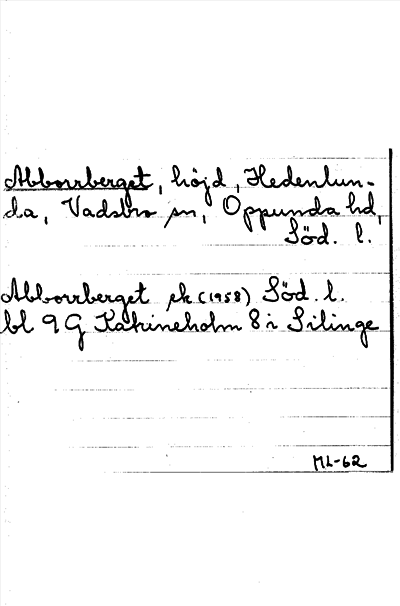 Abborrberget, höjd, Hedenlun-
da, Vadsbro sn, Oppunda hd,
Söd. l.
Abborrberget ek (1958) Söd. l.
bl 9 G Katrineholm 8 i Silinge
ML-62